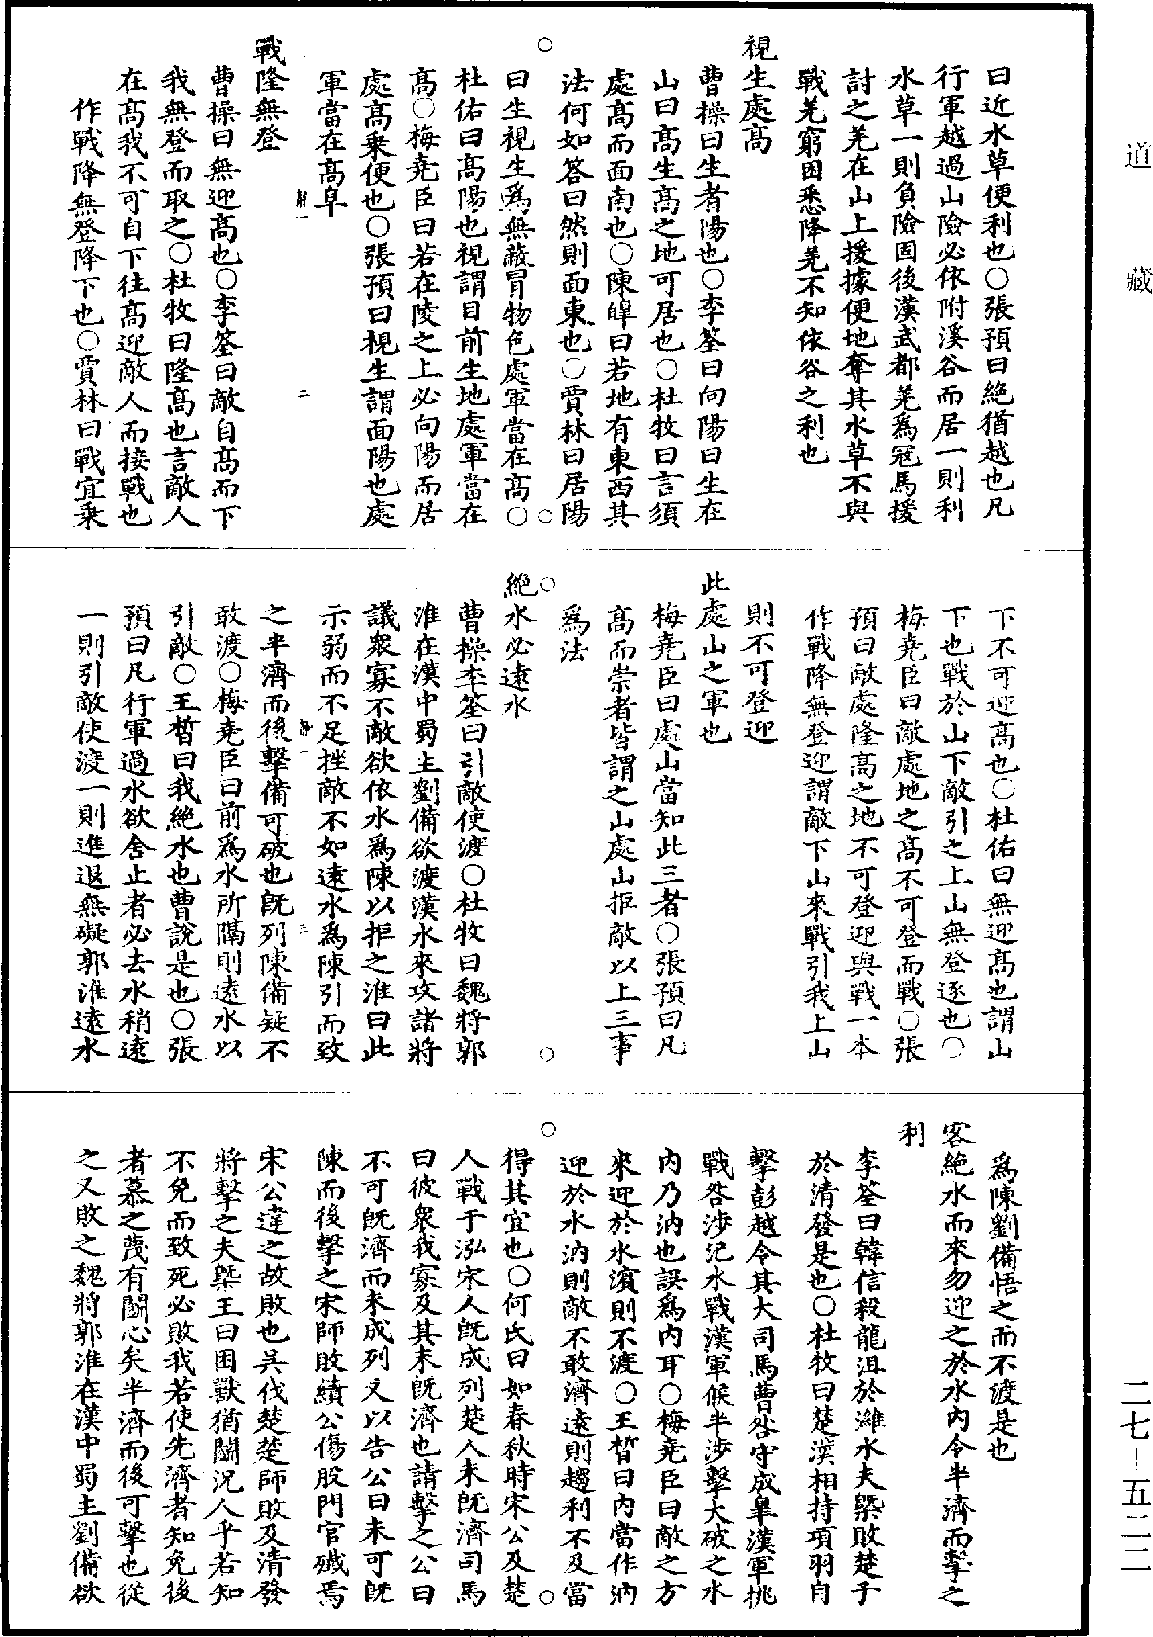 道藏
曰近水草便利也○張預曰絕猶越也凡
行軍越過山險必依附溪谷而居一則利
水草一則負險固後漢武都羌爲寇馬援
討之羌在山上援據便地奪其水草不與
戰羌窮困悉降羌不知依谷之利也
視生處高
曹操曰生者陽也○李筌曰向陽曰生在
山曰高生高之地可居也○杜牧曰言須
處高而面南也○陳皥曰若地有東西其
法何如答曰然則面東也○賈林曰居陽
曰生視生爲無蔽冒物色處軍當在高○
杜佑曰高陽也視謂目前生地處軍當在
高○梅堯臣曰若在陵之上必向陽而居
處高乘便也○張預曰視生謂面陽也處
軍當在高阜
戰隆無登
曹操曰無迎高也○李筌曰敵自高而下
我無登而取之○杜牧曰隆高也言敵人
在高我不可自下往高迎敵人而接戰也
作戰降無登降下也○賈林曰戰宜乘
下不可迎高也○杜佑曰無迎高也謂山
下也戰於山下敵引之上山無登逐也○
梅堯臣曰敵處地之高不可登而戰○張
預曰敵處隆高之地不可登迎與戰一本
作戰降無登迎謂敵下山來戰引我上山
則不可登迎
此處山之軍也
梅堯臣曰處山當知此三者○張預曰凡
高而崇者皆謂之山處山拒敵以上三事
爲法
絕水必遠水
曹操李筌曰引敵使渡○杜牧曰魏將郭
淮在漢中蜀主劉備欲渡漢水來攻諸將
議衆寡不敵欲依水爲陳以拒之淮曰此
示弱而不足挫敵不如遠水爲陳引而致
之半濟而後擊備可破也既列陳備疑不
敢渡○梅堯臣曰前爲水所隔則遠水以
引敵○王晳曰我絕水也曹說是也○張
預曰凡行軍過水欲舍止者必去水稍遠
一則引敵使渡一則進退無礙郭淮遠水
爲陳劉備悟之而不渡是也
客絕水而來勿迎之於水內令半濟而擊之
利
李筌曰韓信殺龍沮於濰水夫槩敗楚子
於清發是也○杜牧曰楚漢相持項羽自
擊彭越令其大司馬曹咎守成皋漢軍挑
戰咎涉汜水戰漢軍候半涉擊大破之水
內乃汭也誤爲內耳○梅堯臣曰敵之方
來迎於水濱則不渡○王晳曰內當作汭
迎於水汭則敵不敢濟遠則趨利不及當
得其宜也○何氏曰如春秋時宋公及楚
人戰于泓宋人既成列楚人未既濟司馬
曰彼衆我寡及其未既濟也請擊之公曰
不可既濟而未成列又以告公曰未可既
陳而後擊之宋師敗績公傷股門官殲焉
宋公違之故敗也吳伐楚楚師敗及清發
將擊之夫槩王曰困獸猶鬬況人乎若知
不免而致死必敗我若使先濟者知免後
者慕之蔑有鬬心矣半濟而後可擊也從
之又敗之魏將郭淮在漢中蜀主劉備欲
二七－五二二